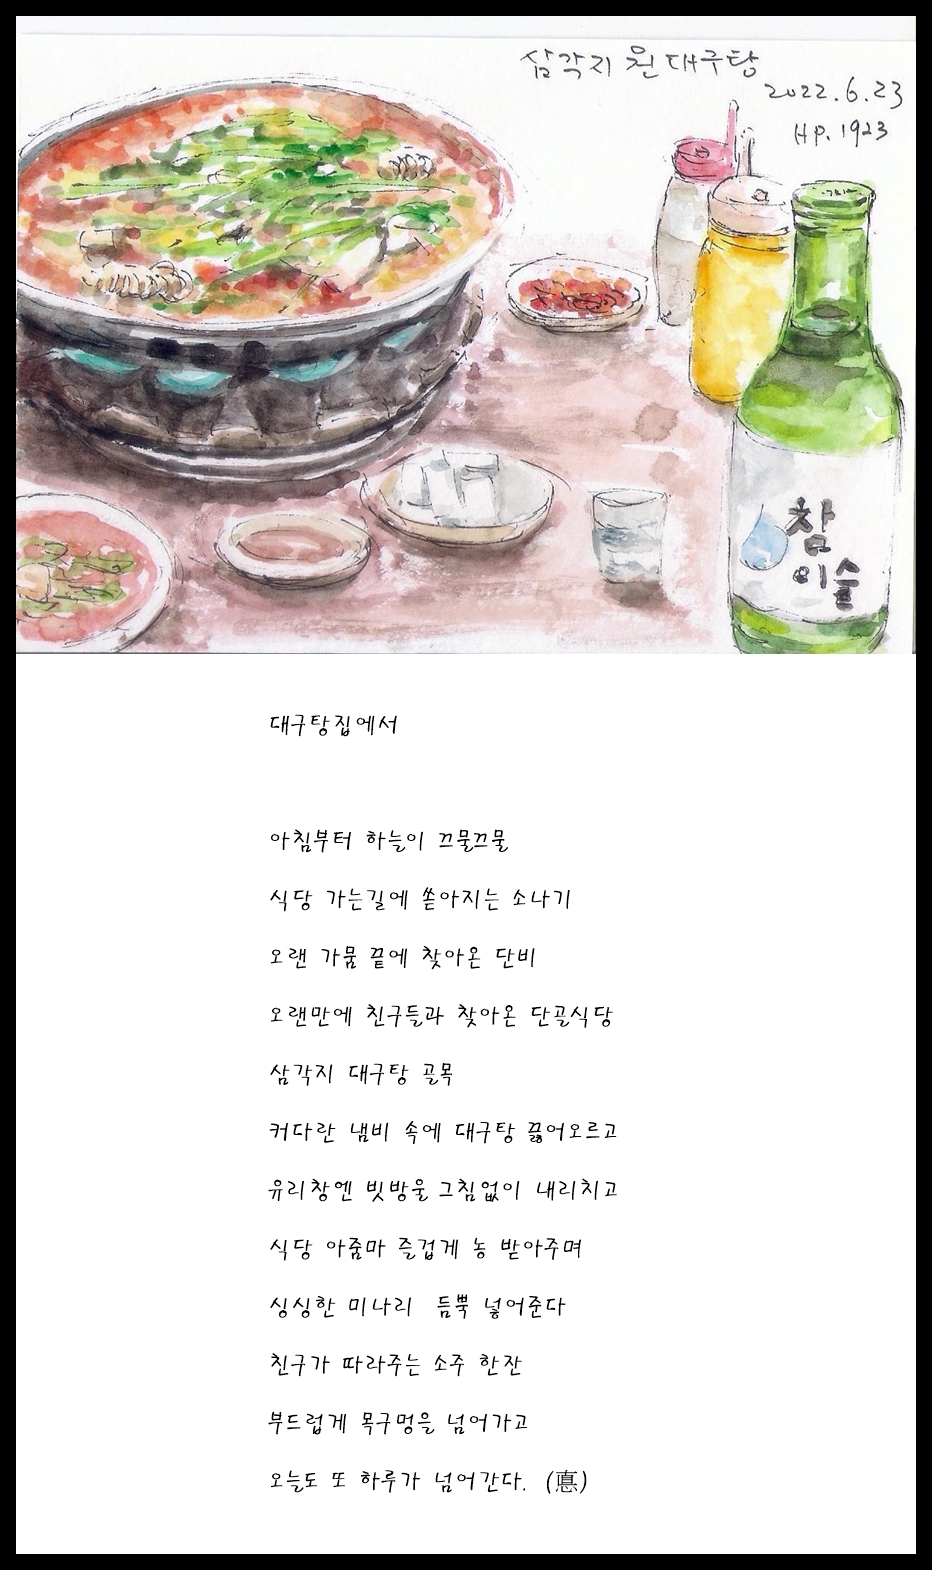 삼각지 원 대구탕
2022.6.23
HP. 1923
참
이슬
대구탕집에서
아침부터 하늘이 끄물끄물
식당 가는길에 쏟아지는 소나기
오랜 가뭄 끝에 찾아온 단비
오랜만에 친구들과 찾아온 단골식당
삼각지 대구탕 골목
커다란 냄비 속에 대구탕 끓어오르고
유리창엔 빗방울 그침없이 내리치고
식당 아줌마 즐겁게 농 받아주며
싱싱한 미나리 듬뿍 넣어준다
친구가 따라주는 소주 한잔
부드럽게 목구멍을 넘어가고
오늘도 또 하루가 넘어간다. (悳)